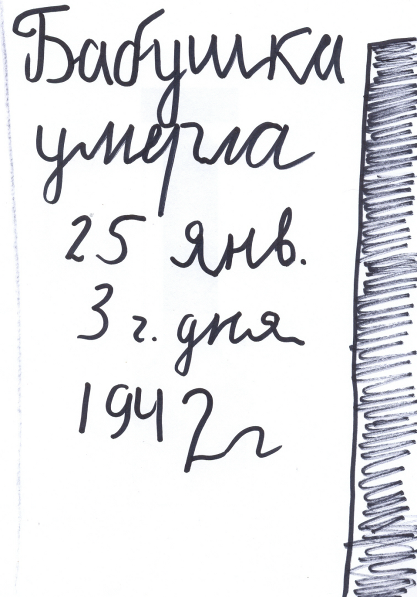 Бабушка
умерла
25 янв.
3 г. дня
1942 г